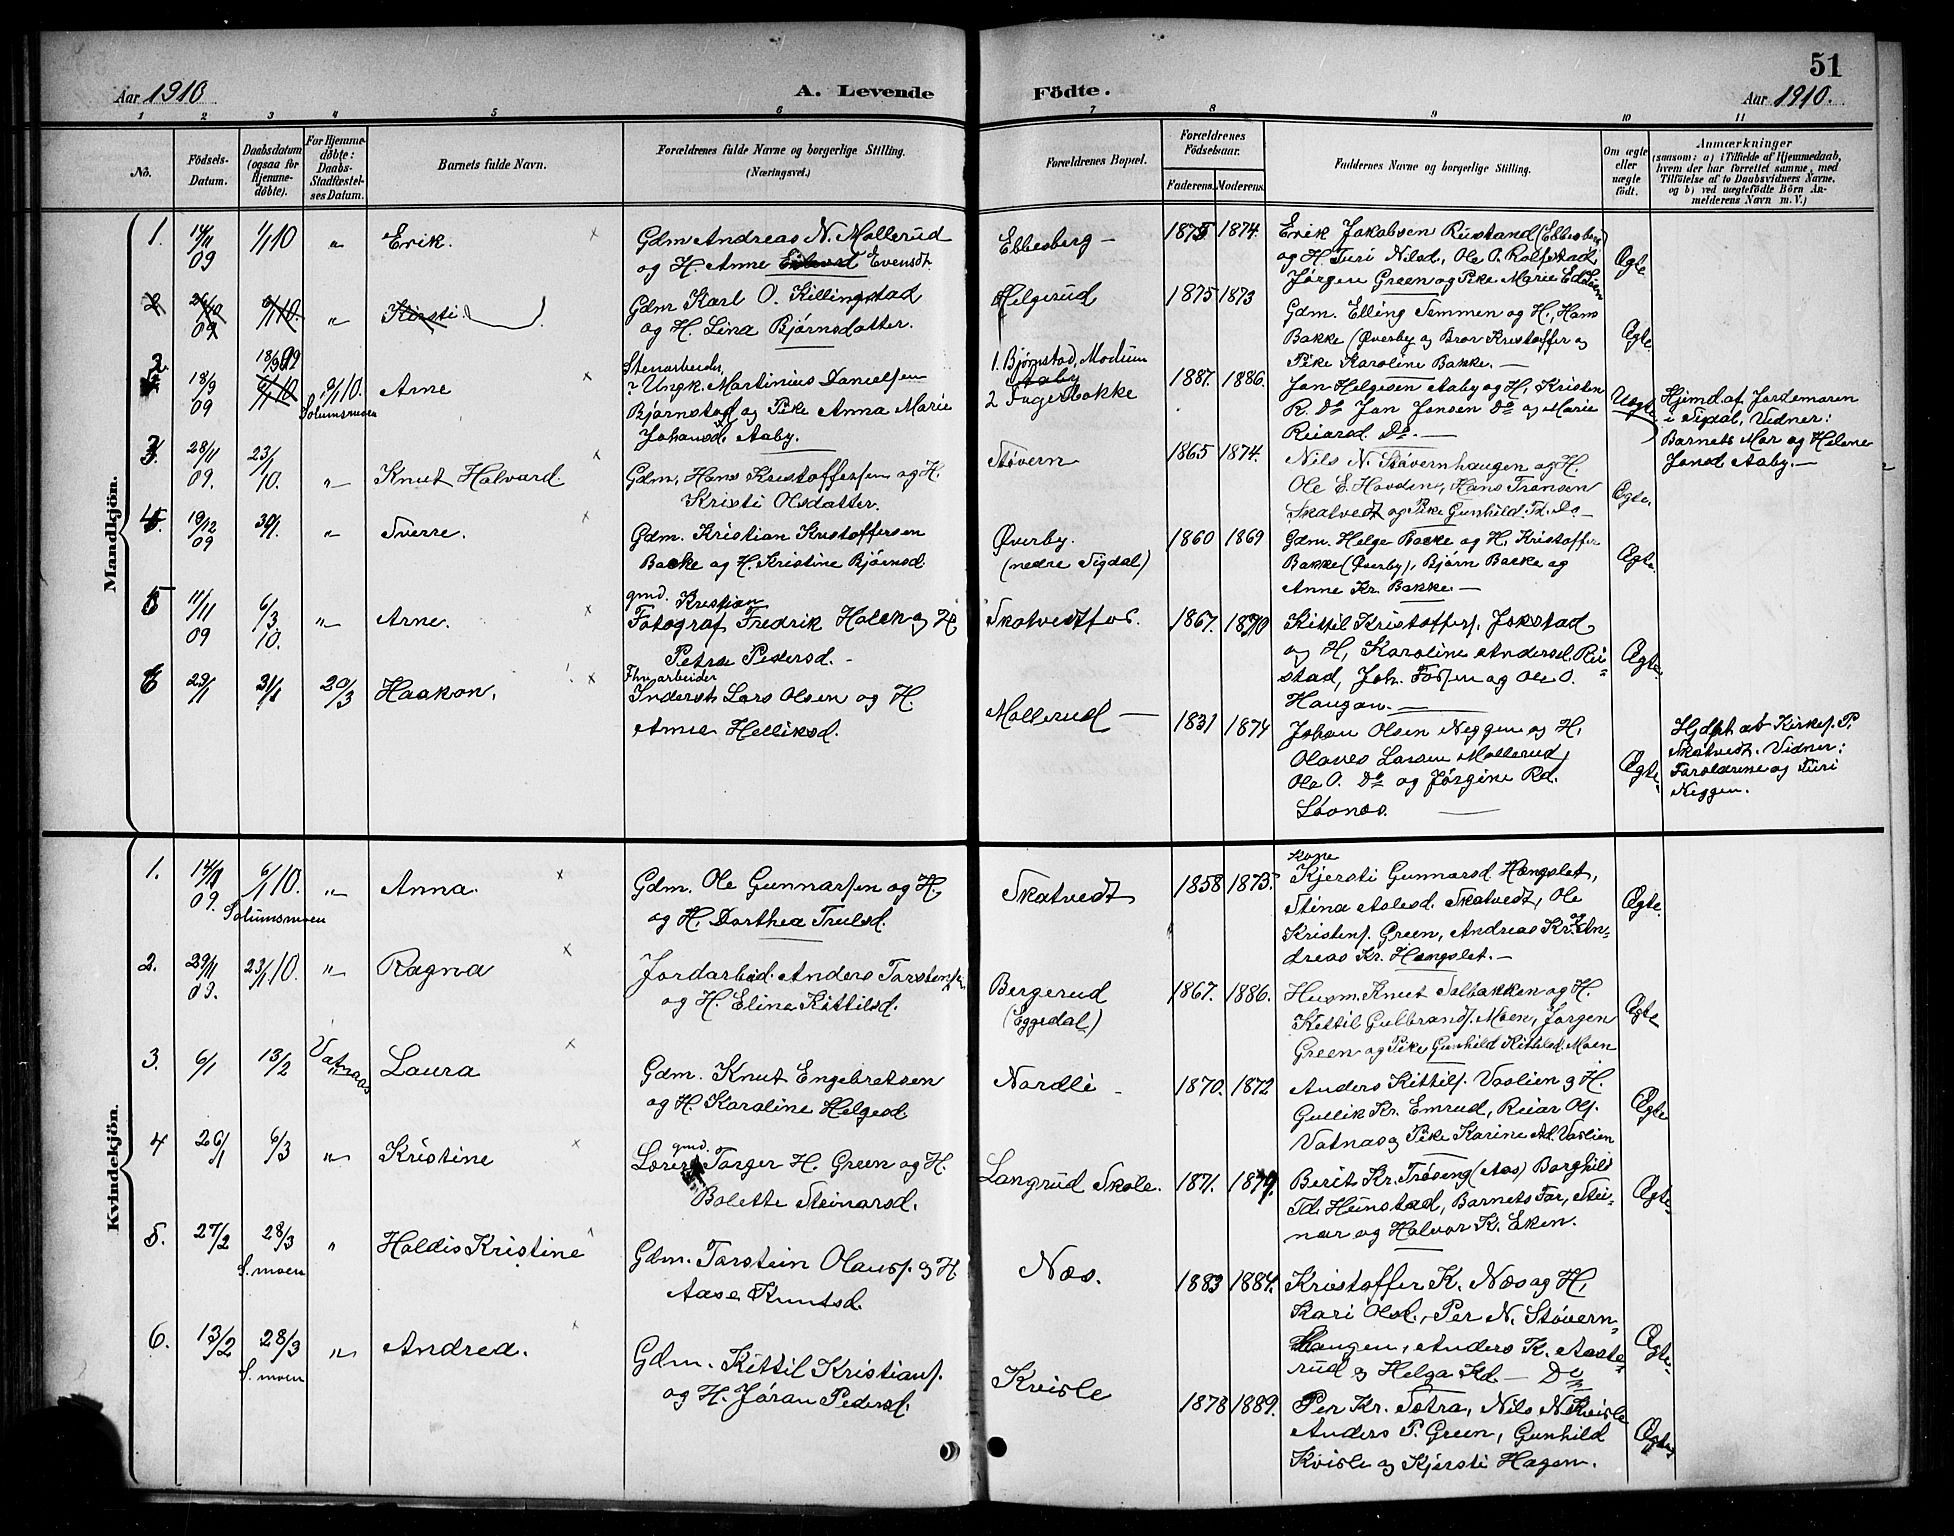 51
Aar 1910
A. Levende
Födte.
Aar 1910.
1 2 3 4 5 6 7 8 9 10 11
No.
Födsels-
Datum.
Daabsdatum
(ogsaa for
Hjemme-
döbte).
For Hjemme-
döbte:
Daabs-
Stadfæstel-
ses Datum.
Barnets fulde Navn.
Forældrenes fulde Navne og borgerlige Stilling.
(Næringsvei.)
Forældrenes Bopæl.
Forældrenes
Födselsaar.
Faderens.
Moderens.
Faddernes Navne og borgerlige Stilling.
Om ægte
eller
uægte
födt.
Anmærkninger
(saasom: a) i Tilfælde af Hjemmedaab,
hvem der har forrettet samme, med
Tilföielse af to Daabsvidners Navne,
og b) ved uægtefödte Börn An-
melderens Navn m. V.)
Mandkjön.
1. 14/11 09 1/1 10 „ Erik.
Gdm Andreas N. Mollerud
og H. Anne Evensdt.
Ebbesberg –
1875 1874.
Erik Jakobsen Rustand (Ebbesberg)
og H. Turi Nilsd, Ole O. Rolfstad
Jørgen Green og Pike Marie
Ægte
2 09 6/1 10. „ Kirsti.
Gdm Karl O. Killingstad
og H. Lina Bjørnsdatter.
Helgerud
1875 1873
Gdm. Elling Temmen og H, Hans
Bakke (Øverby og Bror Kristoffer og
Pike Karoline Bakke. –
Ægte.
2 18/9 09 6/1 10 9/1 10. Solumsmoen Arne
Stenarbeider
Ungk. Martinius Danielsen
Bjørnstad og Pike Anna Marie
Johansd. Aaby.
1. Bjørnstad, Modum
Aaby
2 Fagerbakke
1887. 1886.
Jon Helgesen Aaby og H, Kristen
R. Do Jan Jonsen Do og Marie
Reiersd. Do. –
Uægte
Hjemd. af Jordemoren
i Sigdal, Vidner:
Barnets Mor og Helene
Jonsd Aaby. –
3. 28/11 09. 23/1 10. „ Knut Halvard.
Gdm, Hans Kristoffersen og H.
Kristi Olsdatter.
Støvern
1865 1874.
Nils N. Støvernhaugen og H.
Ole E. Hovdene, Hans Transen
Skatvedt og Pike Gunhild
Ægte.
4. 19/12 09 30/1. „ Sverre.
Gdm. Kristian Kristoffersen
Bakke og H. Kristine Bjørnsd
Øverby.
(nedre Sigdal)
1860 1869
Gdm. Helge Bakke og H, Kristoffer
Bakke (Øverby), Bjørn Bakke og
Anne Kr. Bakke. –
Ægte.
5 11/11 09 6/3 10. „ Arne.
gmd. Kristian
Fotograf Fredrik Holen og H
Petra Pedersd. –
Skatvedtfos.
1867. 1870
Kittil Kristoffers. Jokstad
og H, Karoline Andersd. Ru-
stad, Joh. Fossen og Ole O.
Haugan. –
Ægte.
6 29/1 31/1 20/3 Haakon.
Inderst Lars Olsen og H.
Anne Helliksd.
Mollerud –
1831 1874
Johan Olsen Neggen og H,
Olaves Larsen Mollerud,
Ole O. Do og Jørgine Rd.
Løvnes.
Ægte.
Hjdøpt ab Kirkes. P.
Skatvedt. Vidner:
Forældrene og Turi
Neggen.
Kvindekjön.
1. 14/11 09. 6/1 10. „ Anna.
Solumsmoen
Gdm. Ole Gunnarsen og H,
og H. Dorthea Trulsd.
Skatvedt
1858 1875.
Kone
Kjersti Gunnarsd Hængslet,
Stina Aalesd. Skatvedt, Ole
Kristens. Green, Andreas Kr. og An-
dreas Kr. Hængslet. –
Ægte.
2. 29/11 09. 23/1 10. „ Ragna
Jordarbeid. Anders Torstens.
og H. Eline Kittilsd.
Bergerud
(Eggedal)
1867. 1886.
Husm. Knut Solbakken og H.
Kittil Gulbrands. Moen, Jørgen
Green og Pike Gunhild Kittilsd. Moen
Ægte
3. 6/1 13/2 Vatnaas Laura
Gdm. Knut Engebretsen
og H. Karoline Helgesd
Nordli –
1870. 1872
Anders Kittils. Vaalien og H.
Gullik Kr. Emrud, Reiar Ols.
Vatnas og Pike Karine Ad. Vaalien
Ægte
4 26/1 6/3 „ Kristine
gmd.
Lærer Torger H. Green og H.
Bolette Steinarsd.
Langrud Skole.
1871. 1879.
Berit Kr. Trøseng (Aas) Borghild
Td. Hunstad, Barnets Far, Stei-
nar og Halvor K. Eken.
Ægte.
5. 27/2 28/3 „ Haldis Kristine
S. moen
Gdm. Torstein Olaus. og H.
Aase Knutsd.
Næs.
1883 1884.
Kristoffer K. Næs og H,
Kari Olsd., Per N. Støvern-
haugen, Anders K. Aaste-
rud og Helga Kd. – Do
Ægte.
6. 13/2 28/3 „ Andrea.
S. moen
Gdm. Kittil Kristians.
og H. Jøran Peders.
Kvisle
1878 1889.
Per Kr. Sotra, Nils N. Kvisle
Anders P. Green, Gunhild
Kvisle og Kjersti Hagen.
Ægte